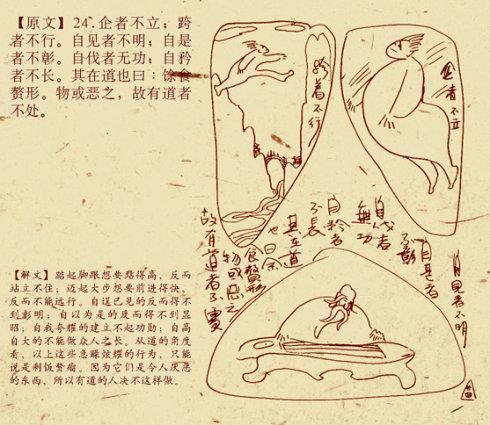 【原文】24.企者不立；跨
者不行。自见者不明；自是
者不彰。自伐者无功；自矜
者不长。其在道也曰：馀食
赘形。物或恶之，故有道者
不处。
跨者不行
企者不立
自见者不明
自是者
不彰
自伐者
無功
自矜者
不長
其在道
也曰余
食贅形
物或惡之
故有道者不處
【解文】踮起脚跟想要站得高，反而
站立不住；迈起大步想要前进得快，
反而不能远行。自逞已见的反而得不
到彰明；自以为是的反而得不到显
昭；自我夸耀的建立不起功勋；自高
自大的不能做众人之长。从道的角度
看，以上这些急躁炫耀的行为，只能
说是剩饭赘瘤。因为它们是令人厌恶
的东西，所以有道的人决不这样做。